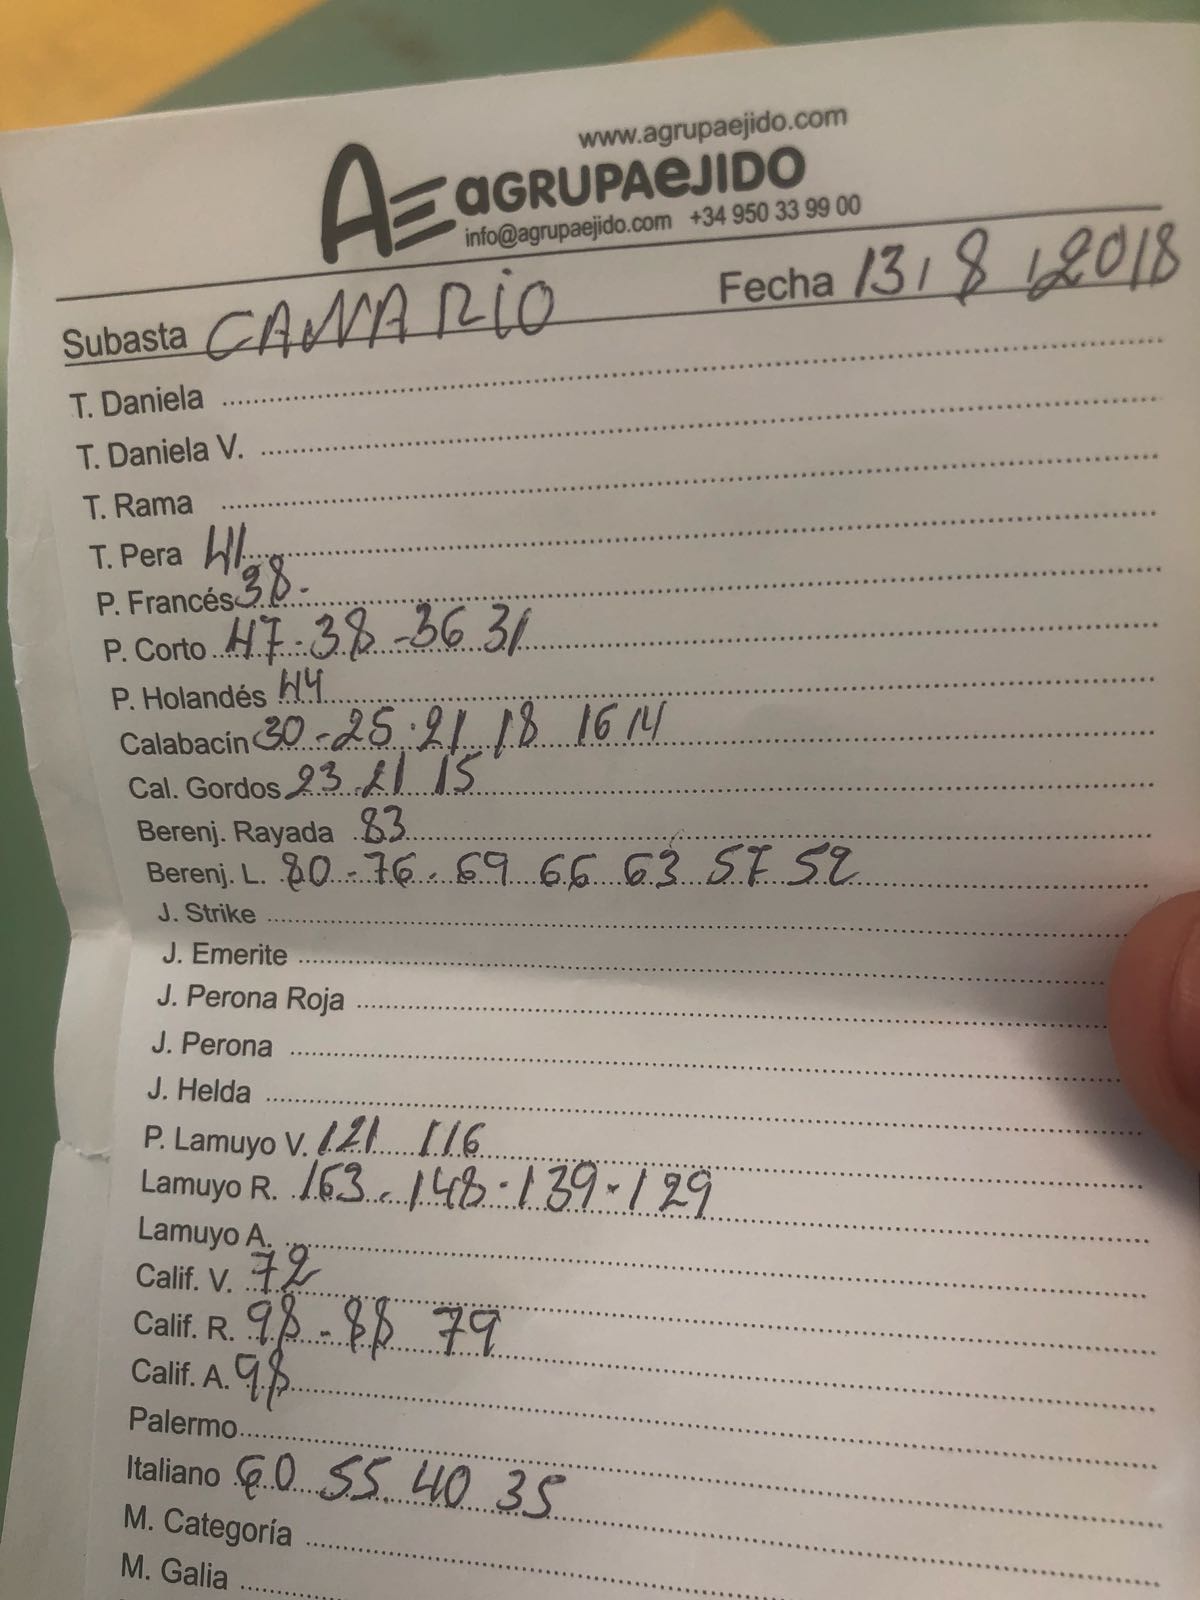 www.agrupaejido.com
AE aGRUPAeJIDO
info@agrupaejido.com +34 950 33 99 00
Subasta CANARIO Fecha 13, 8, 2018
T. Daniela
T. Daniela V.
T. Rama
T. Pera 41
P. Francés 38-
P. Corto 47-38-36 31
P. Holandés 44
Calabacín 30-25·21 18 16 14
Cal. Gordos 23.21 15
Berenj. Rayada 83
Berenj. L. 80-76-69 66 63 57 52
J. Strike
J. Emerite
J. Perona Roja
J. Perona
J. Helda
P. Lamuyo V. 121 116
Lamuyo R. 163-148-139-129
Lamuyo A.
Calif. V. 72
Calif. R. 98-88 79
Calif. A. 98
Palermo
Italiano 60 55 40 35
M. Categoría
M. Galia